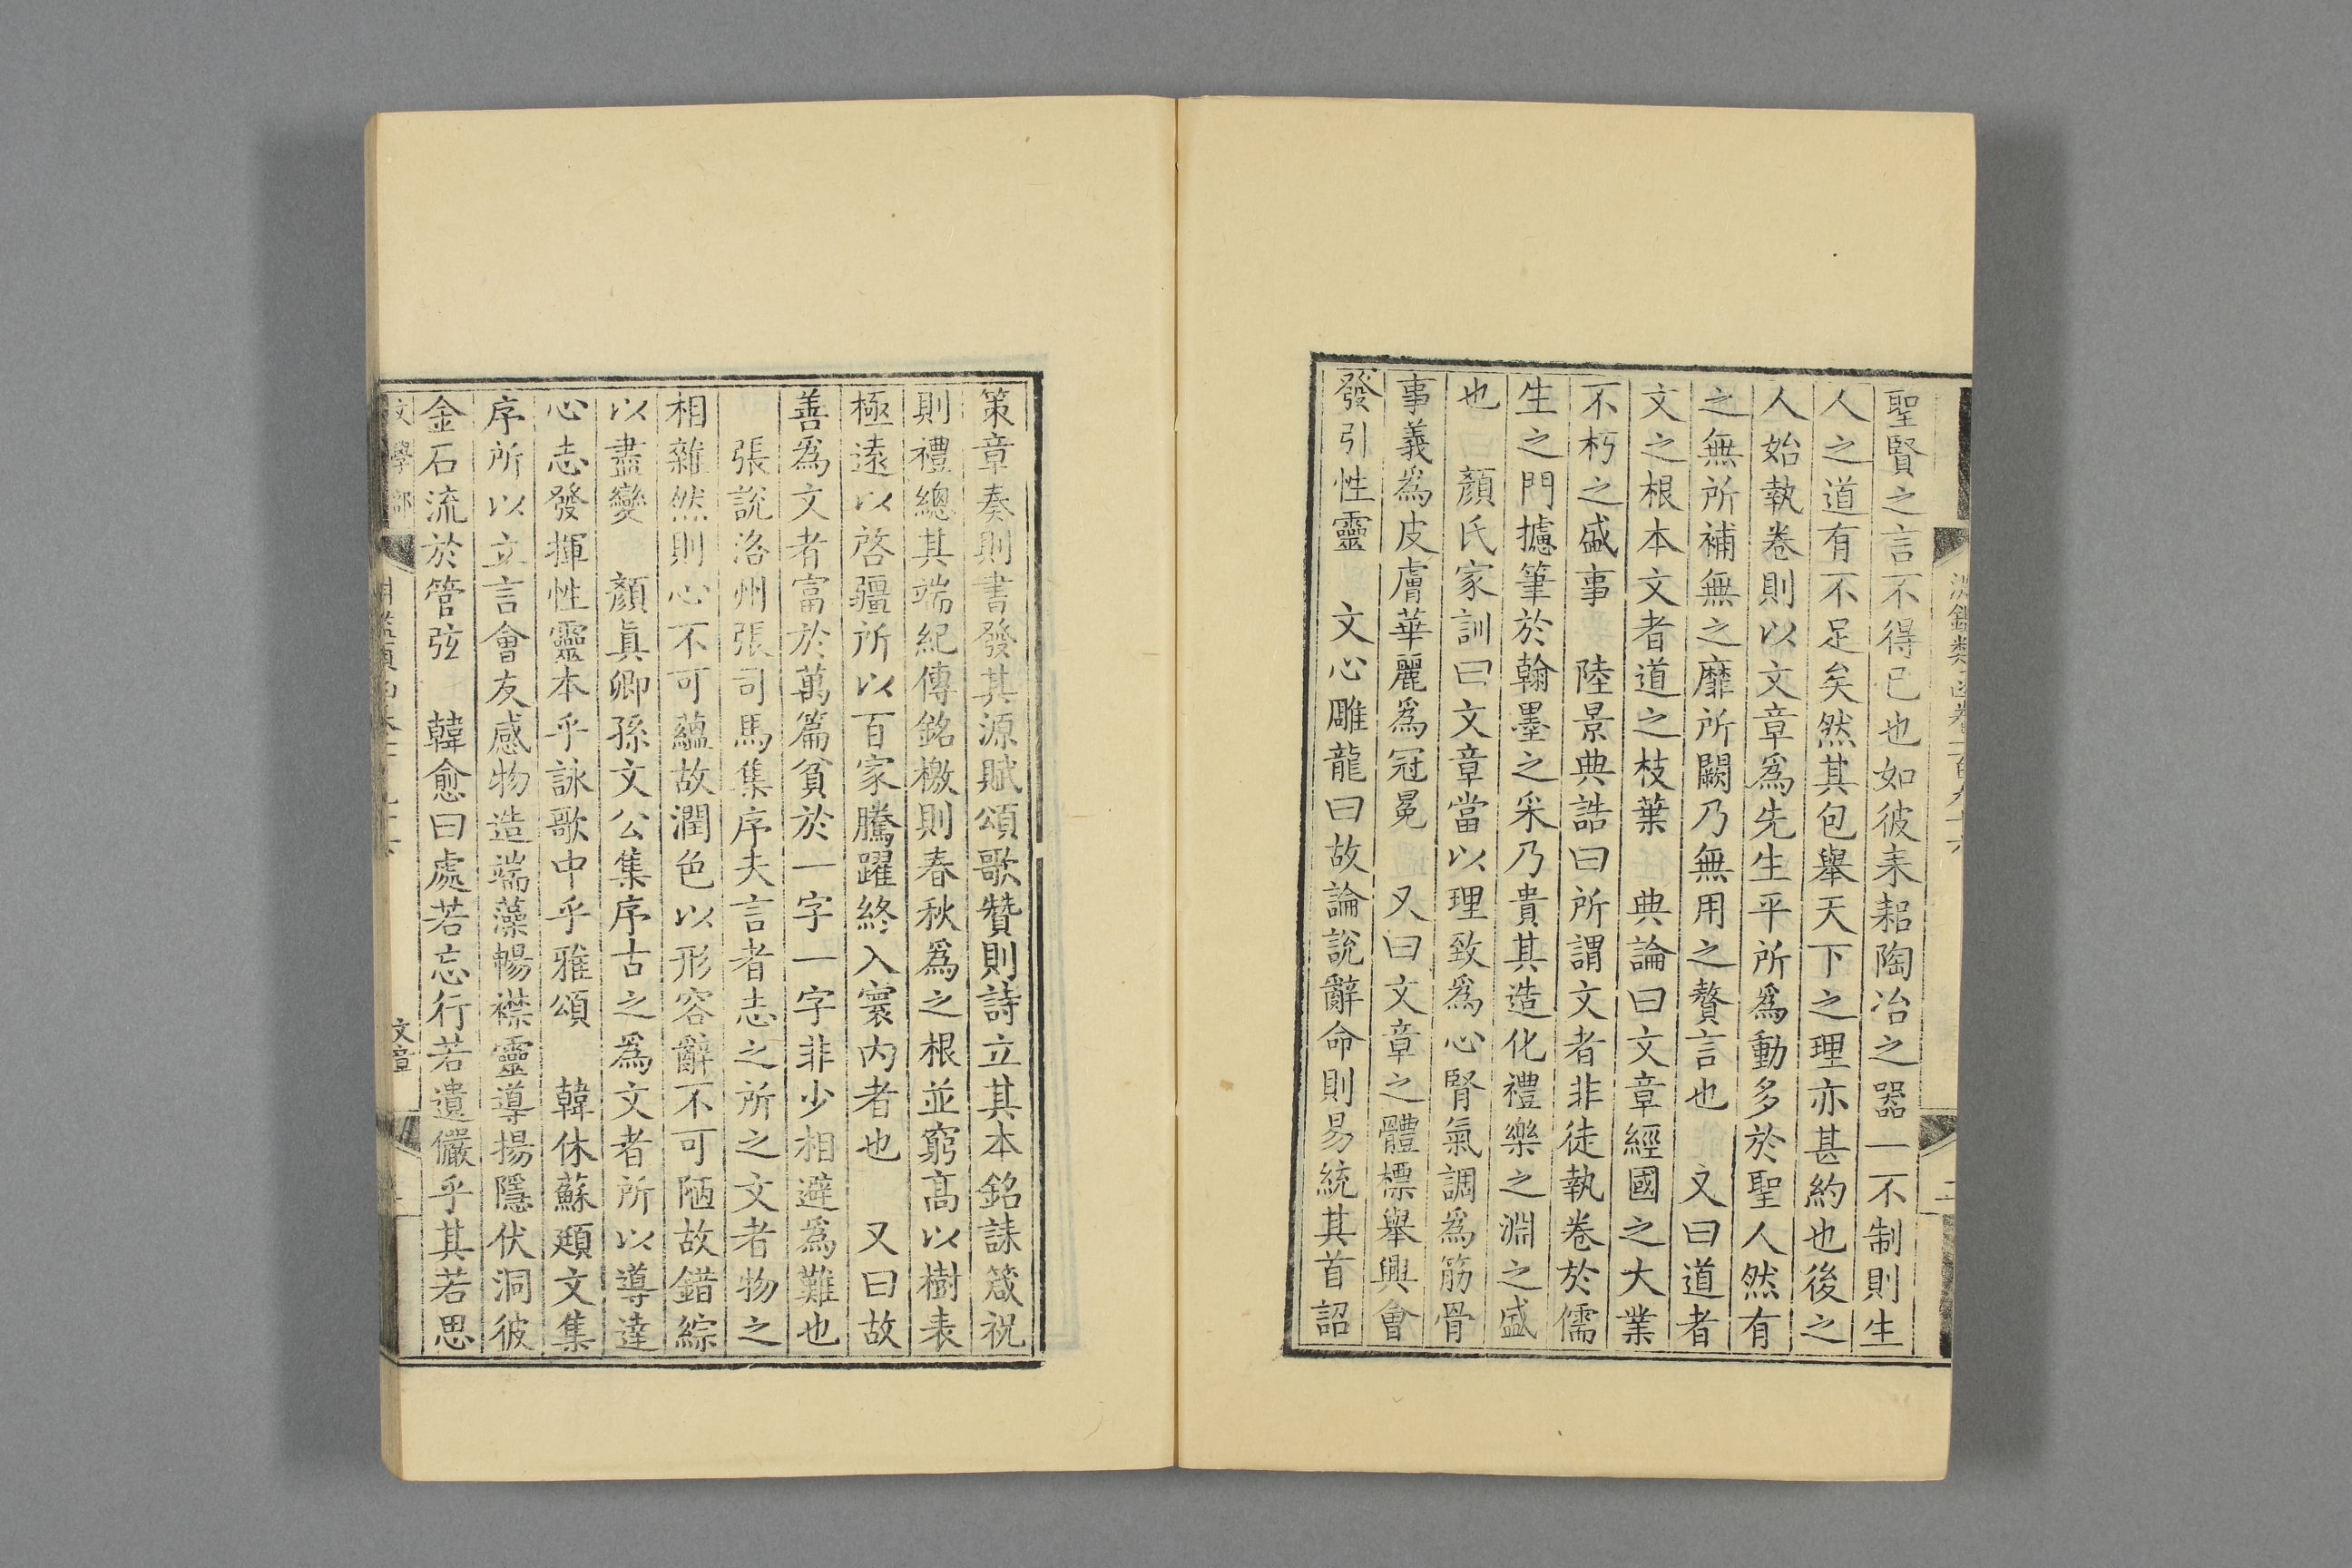 聖賢之言不得已也如彼耒耜陶冶之器一不制則生
人之道有不足矣然其包舉天下之理亦甚約也後之
人始執卷則以文章爲先生平所爲動多於聖人然有
之無所補無之靡所闕乃無用之贅言也　又曰道者
文之根本文者道之枝葉　典論曰文章經國之大業
不朽之盛事　陸景典誥曰所謂文者非徒執卷於儒
生之門攄筆於翰墨之采乃貴其造化禮樂之淵之盛
也　顏氏家訓曰文章當以理致爲心腎氣調爲筋骨
事義爲皮膚華麗爲冠冕　又曰文章之體標舉興會
發引性靈　文心雕龍曰故論說辭命則易統其首詔
策章奏則書發其源賦頌歌贊則詩立其本銘誄箴祝
則禮總其端紀傳銘檄則春秋爲之根並窮高以樹表
極遠以啓疆所以百家騰躍終入寰內者也　又曰故
善爲文者富於萬篇貧於一字一字非少相避爲難也
張說洛州張司馬集序夫言者志之所之文者物之
相雜然則心不可蘊故潤色以形容辭不可陋故錯綜
以盡變　顏眞卿孫文公集序古之爲文者所以導達
心志發揮性靈本乎詠歌中乎雅頌　韓休蘇頲文集
序所以立言會友感物造端藻暢襟靈導揚隱伏洞彼
金石流於管弦　韓愈曰處若忘行若遺儼乎其若思
文學部
文章